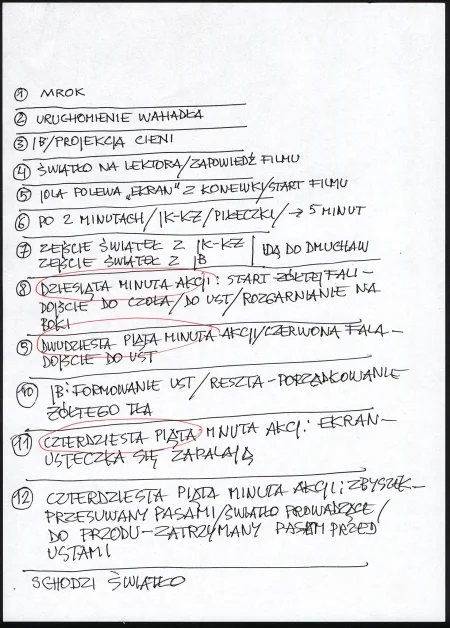 ① MROK
② URUCHOMIENIE WAHADŁA
③ JB/PROJEKCJA CIENI
④ ŚWIATŁO NA LEKTORA/ZAPOWIEDŹ FILMU
⑤ JOLA POLEWA „EKRAN” Z KONEWKI/START FILMU
⑥ PO 2 MINUTACH/JK-KZ/PIŁECZKI/→ 5 MINUT
⑦ ZEJŚCIE ŚWIATEŁ Z JK-KZ
ZEJŚCIE ŚWIATEŁ Z JB | IDĄ DO DMUCHAW
⑧ DZIESIĄTA MINUTA AKCJI: START ŻÓŁTEJ FALI-
DOJŚCIE DO CZOŁA/DO UST/ROZGARNIANIE NA
BOKI
⑨ DWUDZIESTA PIĄTA MINUTA AKCJI/CZERWONA FALA-
DOJŚCIE DO UST
⑩ JB: FORMOWANIE UST/RESZTA-PORZĄDKOWANIE
ŻÓŁTEGO TŁA
⑪ CZTERDZIESTA PIĄTA MINUTA AKCJI: EKRAN-
USTECZKA SIĘ ZAPALAJĄ
⑫ CZTERDZIESTA PIĄTA MINUTA AKCJI: ZBYSZEK-
PRZESUWANY PASAMI/ŚWIATŁO PROWADZĄCE/
DO PRZODU-ZATRZYMANY PASAM PRZED
USTAMI
SCHODZI ŚWIATŁO